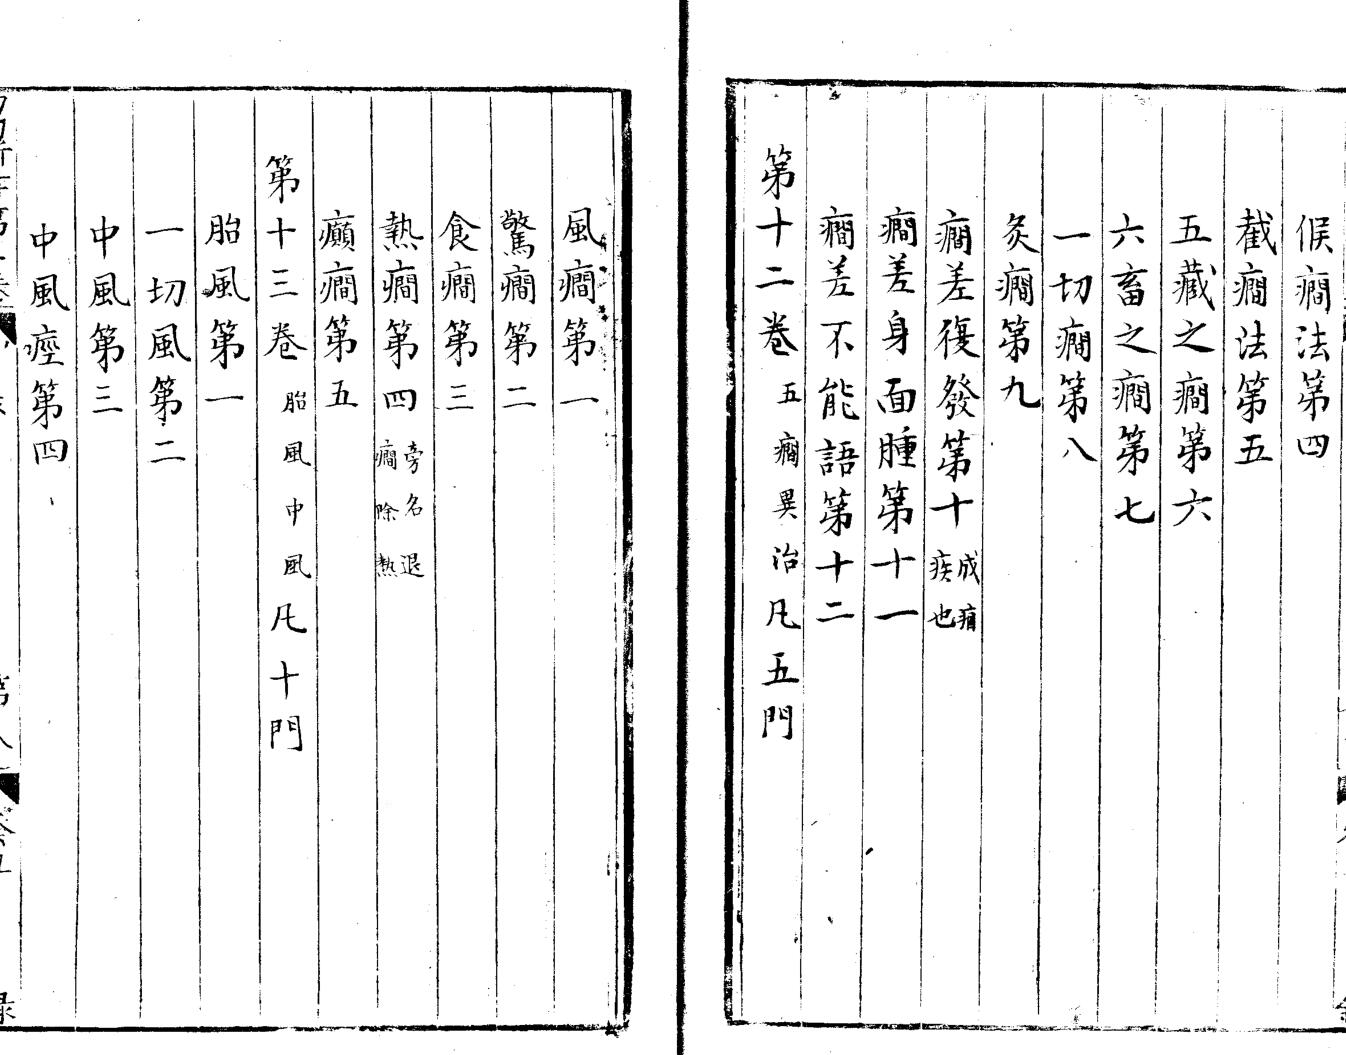 候癇法第四
截癇法第五
五藏之癇第六
六畜之癇第七
一切癇第八
灸癇第九
癇差復發第十 成痼疾也
癇差身面腫第十一
癇差不能語第十二
第十二卷 五癇異治凡五門
風癇第一
驚癇第二
食癇第三
熱癇第四 旁名退癇除熱
癲癇第五
第十三卷 胎風中風凡十門
胎風第一
一切風第二
中風第三
中風痙第四